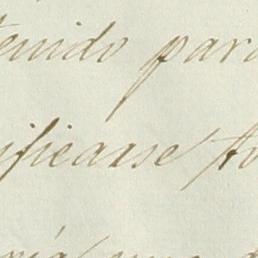 tenido para
ificarse to